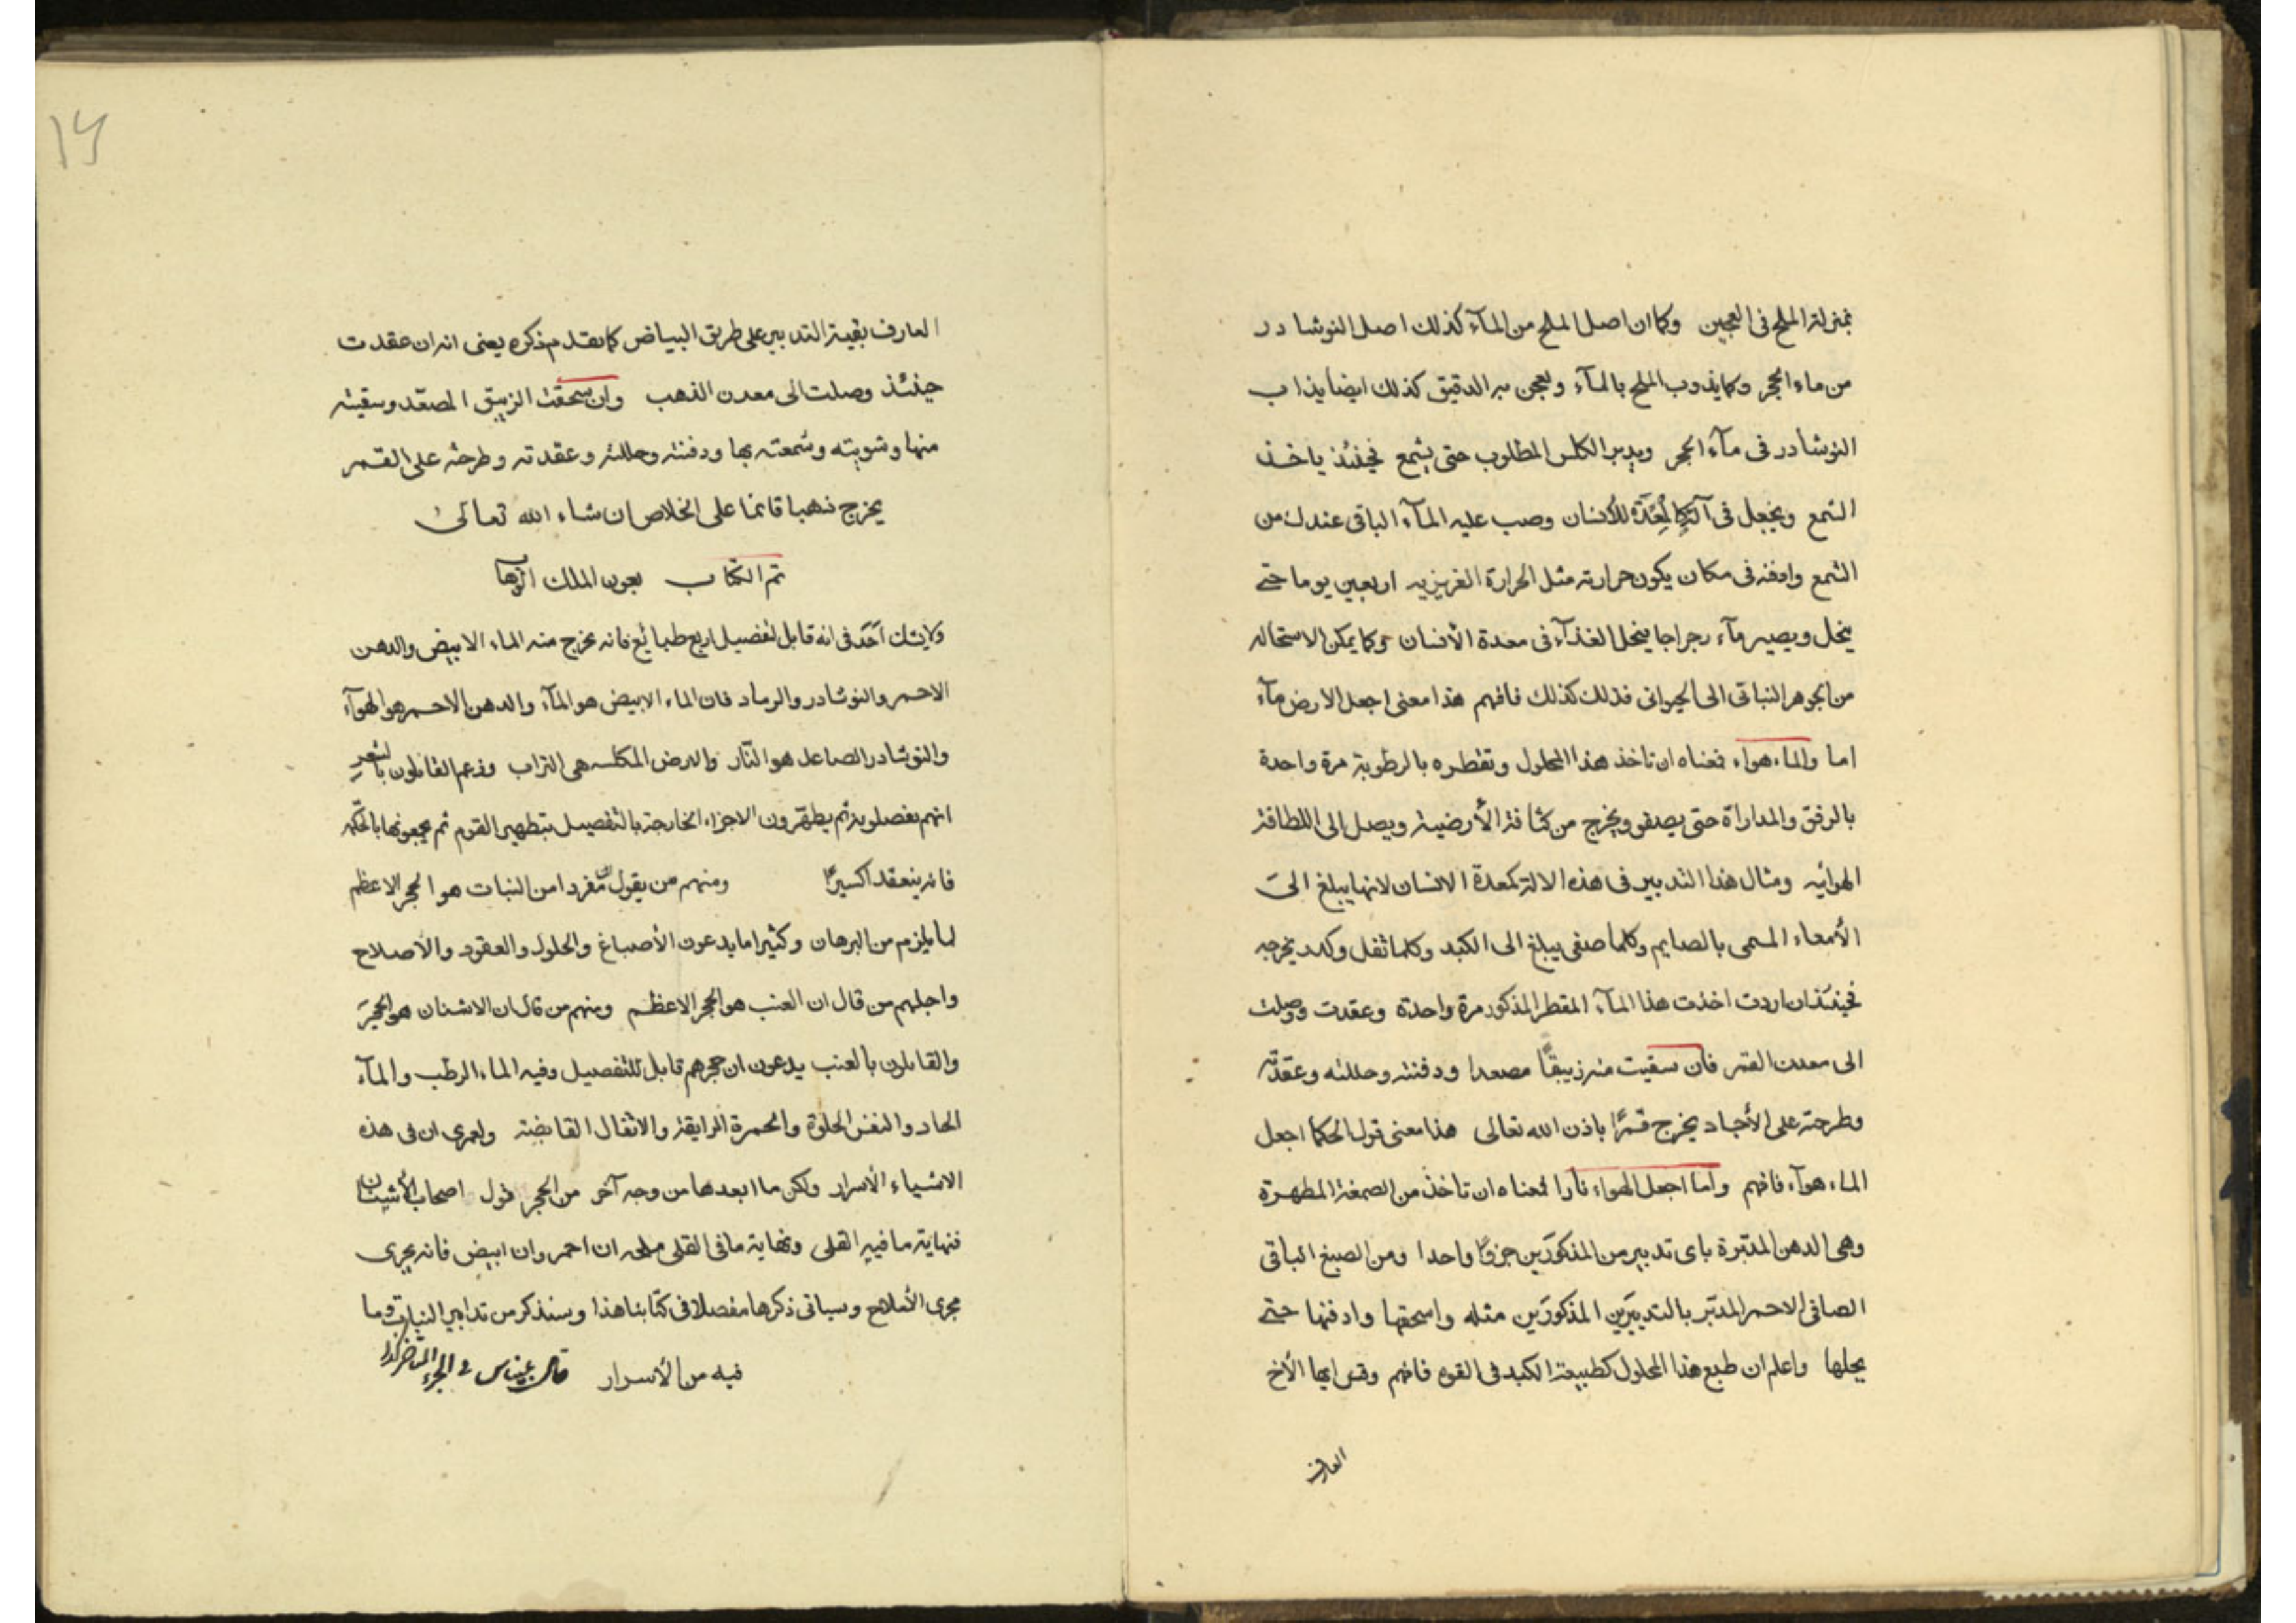 بمنزلة الملح فى العجين وكما ان اصل الملح من المآء كذلك اصل النوشادر
من ماء الحجر وكما يذوب الملح بالمآء ويعجن به الدقيق كذلك ايضا يذاب
النوشادر فى مآء الحجر ويدبر الكلس المطلوب حتى يشمع فحينئذ ياخذ
الشمع ويجعل فى آلة كالمعدة للأنسان وصب عليه المآء الباقى عندك من
الشمع وادفنه فى مكان يكون حرارته مثل الحرارة الغريزيه اربعين يوما حتى
ينحل ويصير مآء رجراجا ينحل الغذآء فى معدة الأنسان وكما يمكن الاستحاله
من الجوهر النباتى الى الحيوانى فذلك كذلك فافهم هذا معنى اجعل الارض مآء
اما والماء هواء فمعناه ان تاخذ هذا المحلول وتقطره بالرطوبة مرة واحدة
بالرفق والمداراة حتى يصفو ويخرج من كثافة الأرضية ويصل الى اللطافة
الهوائيه ومثال هذا التدبير فى هذه الالة كمعدة الانسان لانها يبلغ الى
الأمعاء المسمى بالصايم وكلما صفى يبلغ الى الكبد وكلما ثقل وكدر يخرجه
فحينئذ ان اردت اخذت هذا المآء المقطر المذكور مرة واحدة وعقدت وصلت
الى معدن القمر فان سقيت منه زيبقًا مصعدا ودفنته وحللته وعقدته
وطرحته على الأجساد يخرج قمرًا باذن الله تعالى هذا معنى قول الحكما اجعل
الماء هوآء فافهم واما اجعل الهواء نارا فمعناه ان تاخذ من الصمغة المطهرة
وهى الدهن المدبرة باى تدبير من المذكورين جزوًا واحدا ومن الصبغ الباقى
الصافى الاحمر المدبر بالتدبيرين المذكورين مثله واسحقها وادفنها حتى
يحلها واعلم ان طبع هذا المحلول كطبيعة الكبد فى القوه فافهم وقس ايها الأخ
العارف
العارف بقية التدبير على طريق البياض كما تقدم ذكره يعنى انه ان عقدت
حينئذ وصلت الى معدن الذهب وان سحقت الزيبق المصعّد وسقيته
منها وشويته وشمعته بها ودفنته وحللته وعقدته وطرحته على القمر
يخرج ذهبا قائما على الخلاص ان شاء الله تعالى
تم الكتاب بعون الملك الوهاب
ولايشك احد فى انه قابل لتفصيل اربع طبايع فانه يخرج منه الماء الابيض والدهن
الاحمر والنوشادر والرماد فان الماء الابيض هو المآء والدهن الاحمر هو الهوآء
والنوشادر الصاعد هو النّار والارض المكلسه هى التراب وزعم القائلون بالشعر
انهم يفصلونه ثم يطهّرون الاجزاء الخارجة بالتفصيل بتطهير القوم ثم يجمعونها بالحكمه
فانه ينعقد اكسيرًا ومنهم من يقول ان مفردا من النبات هو الحجر الاعظم
لما يلزم من البرهان وكثيرا ما يدعون الأصباغ والحلول والعقود والاصلاح
واجلهم من قال ان العنب هو الحجر الاعظم ومنهم من قال ان الاشنان هو الحجر
والقائلون بالعنب يدعون ان حجرهم قابل للتفصيل وفيه الماء الرطب والمآء
الحاد والنفس الحلوة والحمرة الرايقة والاثقال القابضة ولعمرى ان فى هذه
الاشياء الأسرار ولكن ما ابعدها من وجه آخر من الحجر قول اصحاب الأشنان
فنهاية ما فيه القلى ونهاية ما فى القلى ملحه ان احمر وان ابيض فانه يجرى
مجرى الأملاح وسياتى ذكرها مفصلا فى كتابنا هذا وسنذكر من تدابير النباتى وما
فيه من الأسرار قال فى الجزء